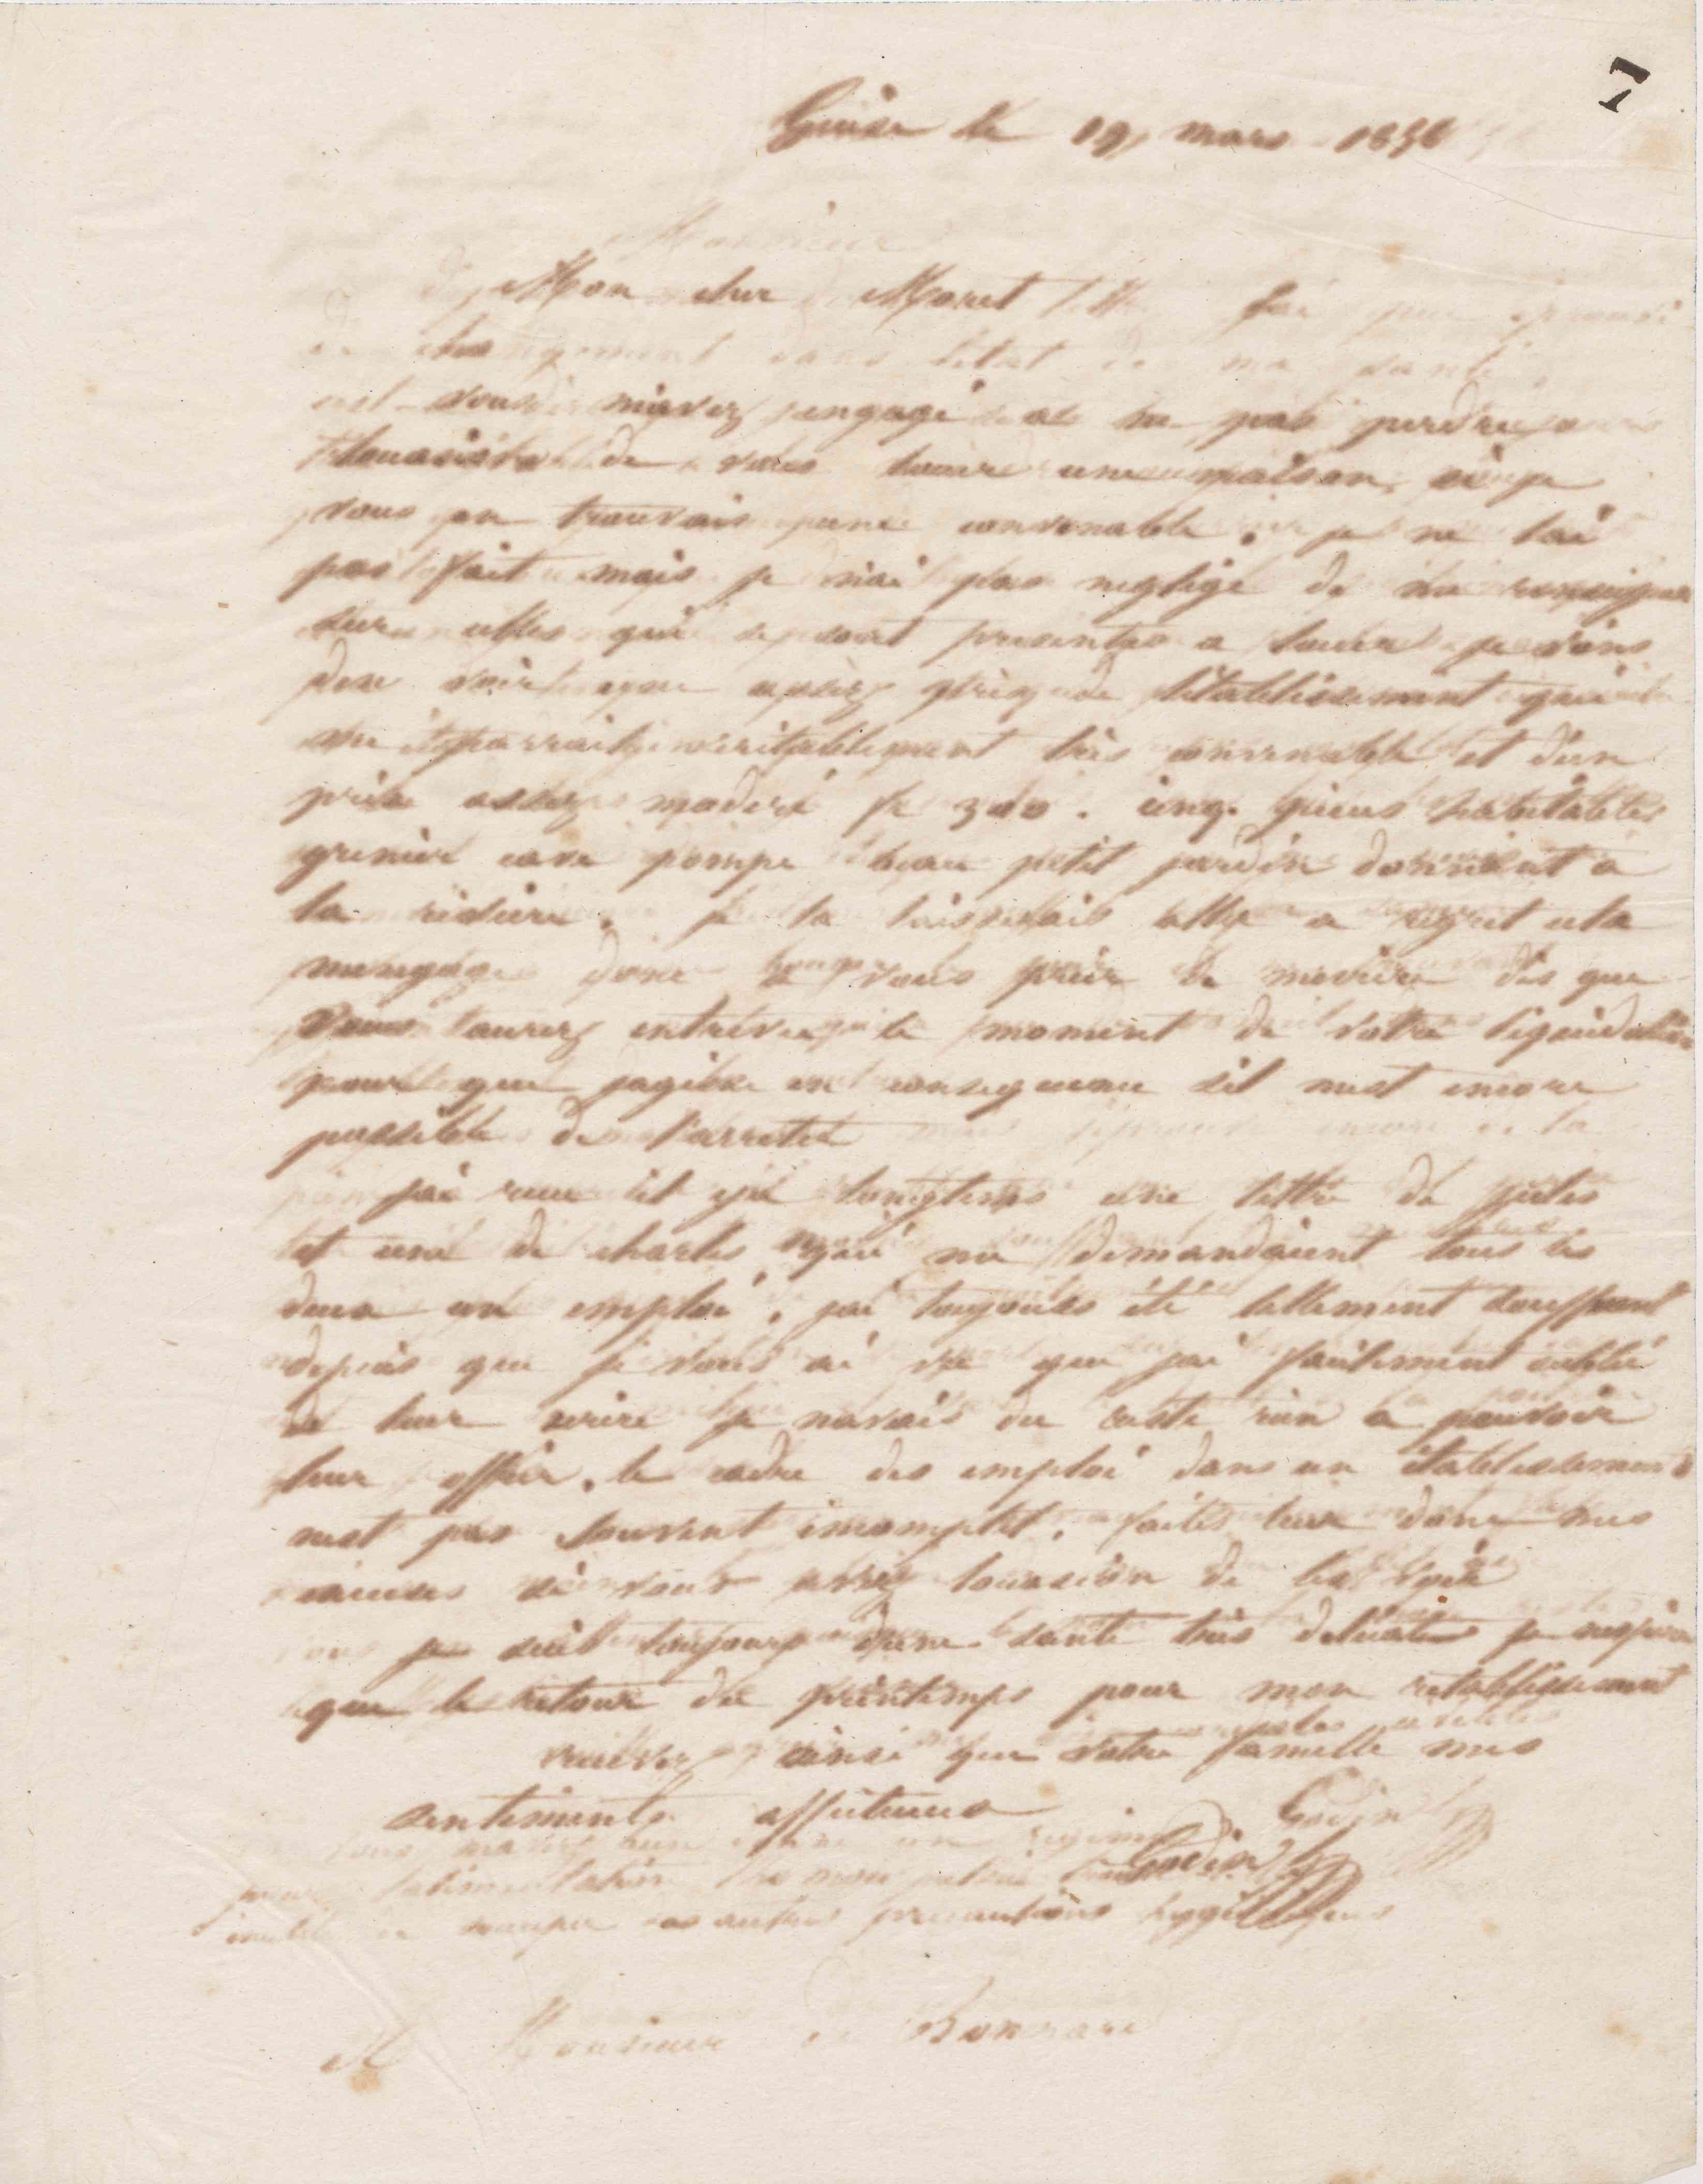 7
Guise le 19 mars 1856
Monsieur
Mon cher Moret
changement dans létat de ma santé
vous mavez engagé a ne pas perdre
loccasion de vous louer une maison si je
vous en trouvais une convenable. je ne lai
pas fait mais je nai pas negligé de me renseigner
sur celles qui se sont presentes a louer je viens
den voir une assez près de létablissement qui
me paraitrait veritablement très convenable et d'un
prix assez modéré fr 300. cinq pieces habitables
grenier cave pompe beau petit jardin donnant à
la rivière. je la laisserais aller a regret cela
mengage donc a vous prier de mecrire dès que
vous aurez entrevu le moment de votre liquidation
pour que jagisse en consequence sil mest encore
possible de l'arreter
jai recu il y a longtemps une lettre de jules
et une de charles qui me demandaient tous les
deux un emploi. jai toujours été tellement souffrant
depuis que je vous ai vu que jai facilement oublié
de leur ecrire je navais du reste rien a pouvoir
leur offrir. le cadre des emploi dans un établissement
nest pas souvent incomplet. faites leur donc mes
excuses si vous avez loccasion de les voir
je suis toujours dune santé très delicate je nespère
que le retour du printemps pour mon retablissement
recevez ainsi que votre famille mes
sentiments affectueux
Godin
Godin
pour lalimentation
autres precautions hygieniques
A Monsieur de Bonnard